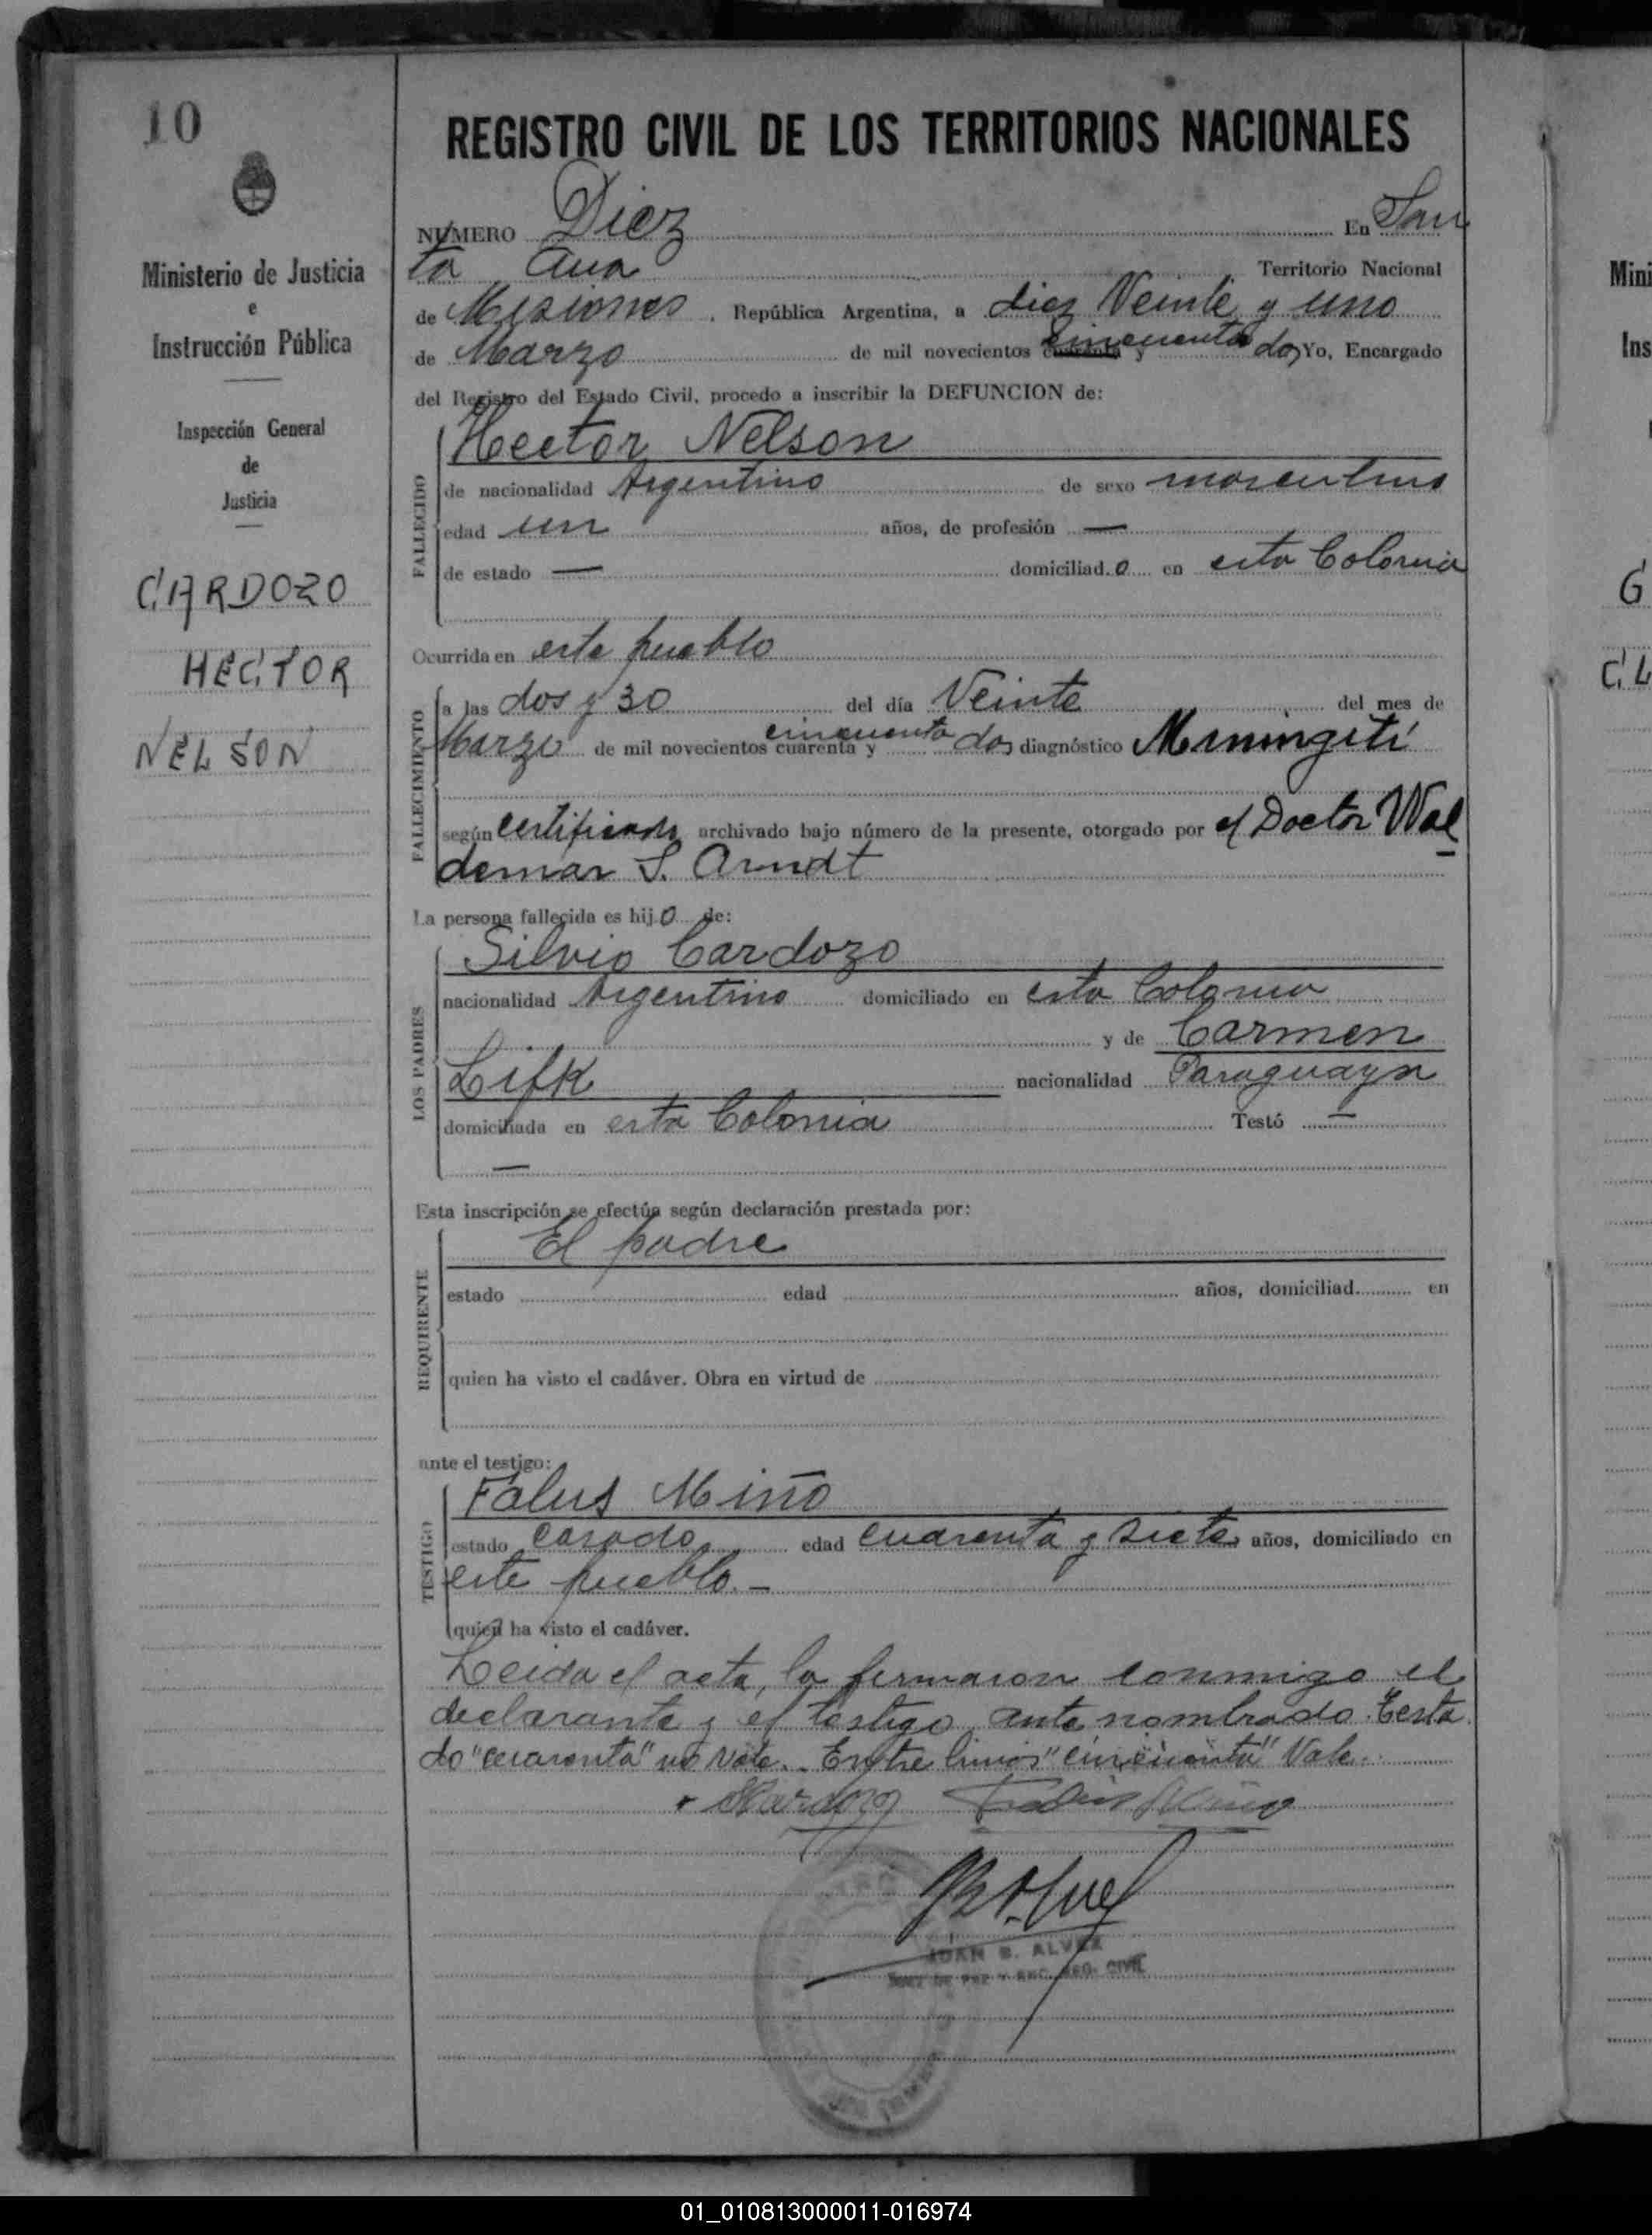 10
Ministerio de Justicia
e
Instrucción Pública
Inspección General
de
Justicia
CARDOZO
HECTOR
NELSON
REGISTRO CIVIL DE LOS TERRITORIOS NACIONALES
NUMERO Diez En San
ta Ana Territorio Nacional
de Misiones, República Argentina, a diez Veinte y uno
de Marzo de mil novecientos cuarenta y cincuenta dos Yo, Encargado
del Registro del Estado Civil, procedo a inscribir la DEFUNCION de:
FALLECIDO
Hector Nelson
de nacionalidad Argentino de sexo masculino
edad un años, de profesión —
de estado — domiciliad o en esta Colonia
Ocurrida en este pueblo
FALLECIMIENTO
a las dos y 30 del día Veinte del mes de
cincuenta
Marzo de mil novecientos cuarenta y dos diagnóstico Miningiti
según certificado archivado bajo número de la presente, otorgado por el Doctor Wal
demar S. Arndt
La persona fallecida es hij o de:
LOS PADRES
Silvio Cardozo
nacionalidad Argentino domiciliado en esta Colonia
y de Carmen
Lifk nacionalidad Paraguaya
domiciliada en esta Colonia Testó —
—
Esta inscripción se efectúa según declaración prestada por:
REQUIRENTE
El padre
estado edad años, domiciliad en
quien ha visto el cadáver. Obra en virtud de
ante el testigo:
TESTIGO
Falus Miño
estado casado edad cuarenta y siete años, domiciliado en
este pueblo. —
quien ha visto el cadáver.
Leida el acta, la firmaron conmigo el
declarante y el testigo ante nombrado. Testa
do "cuarenta" no vale. Entre lineas "cincuenta" Vale.
SCardozo
JUAN B. ALVEZ
JUEZ DE PAZ Y ENC. REG. CIVIL
Mini
Ins
G
CL
01_010813000011-016974